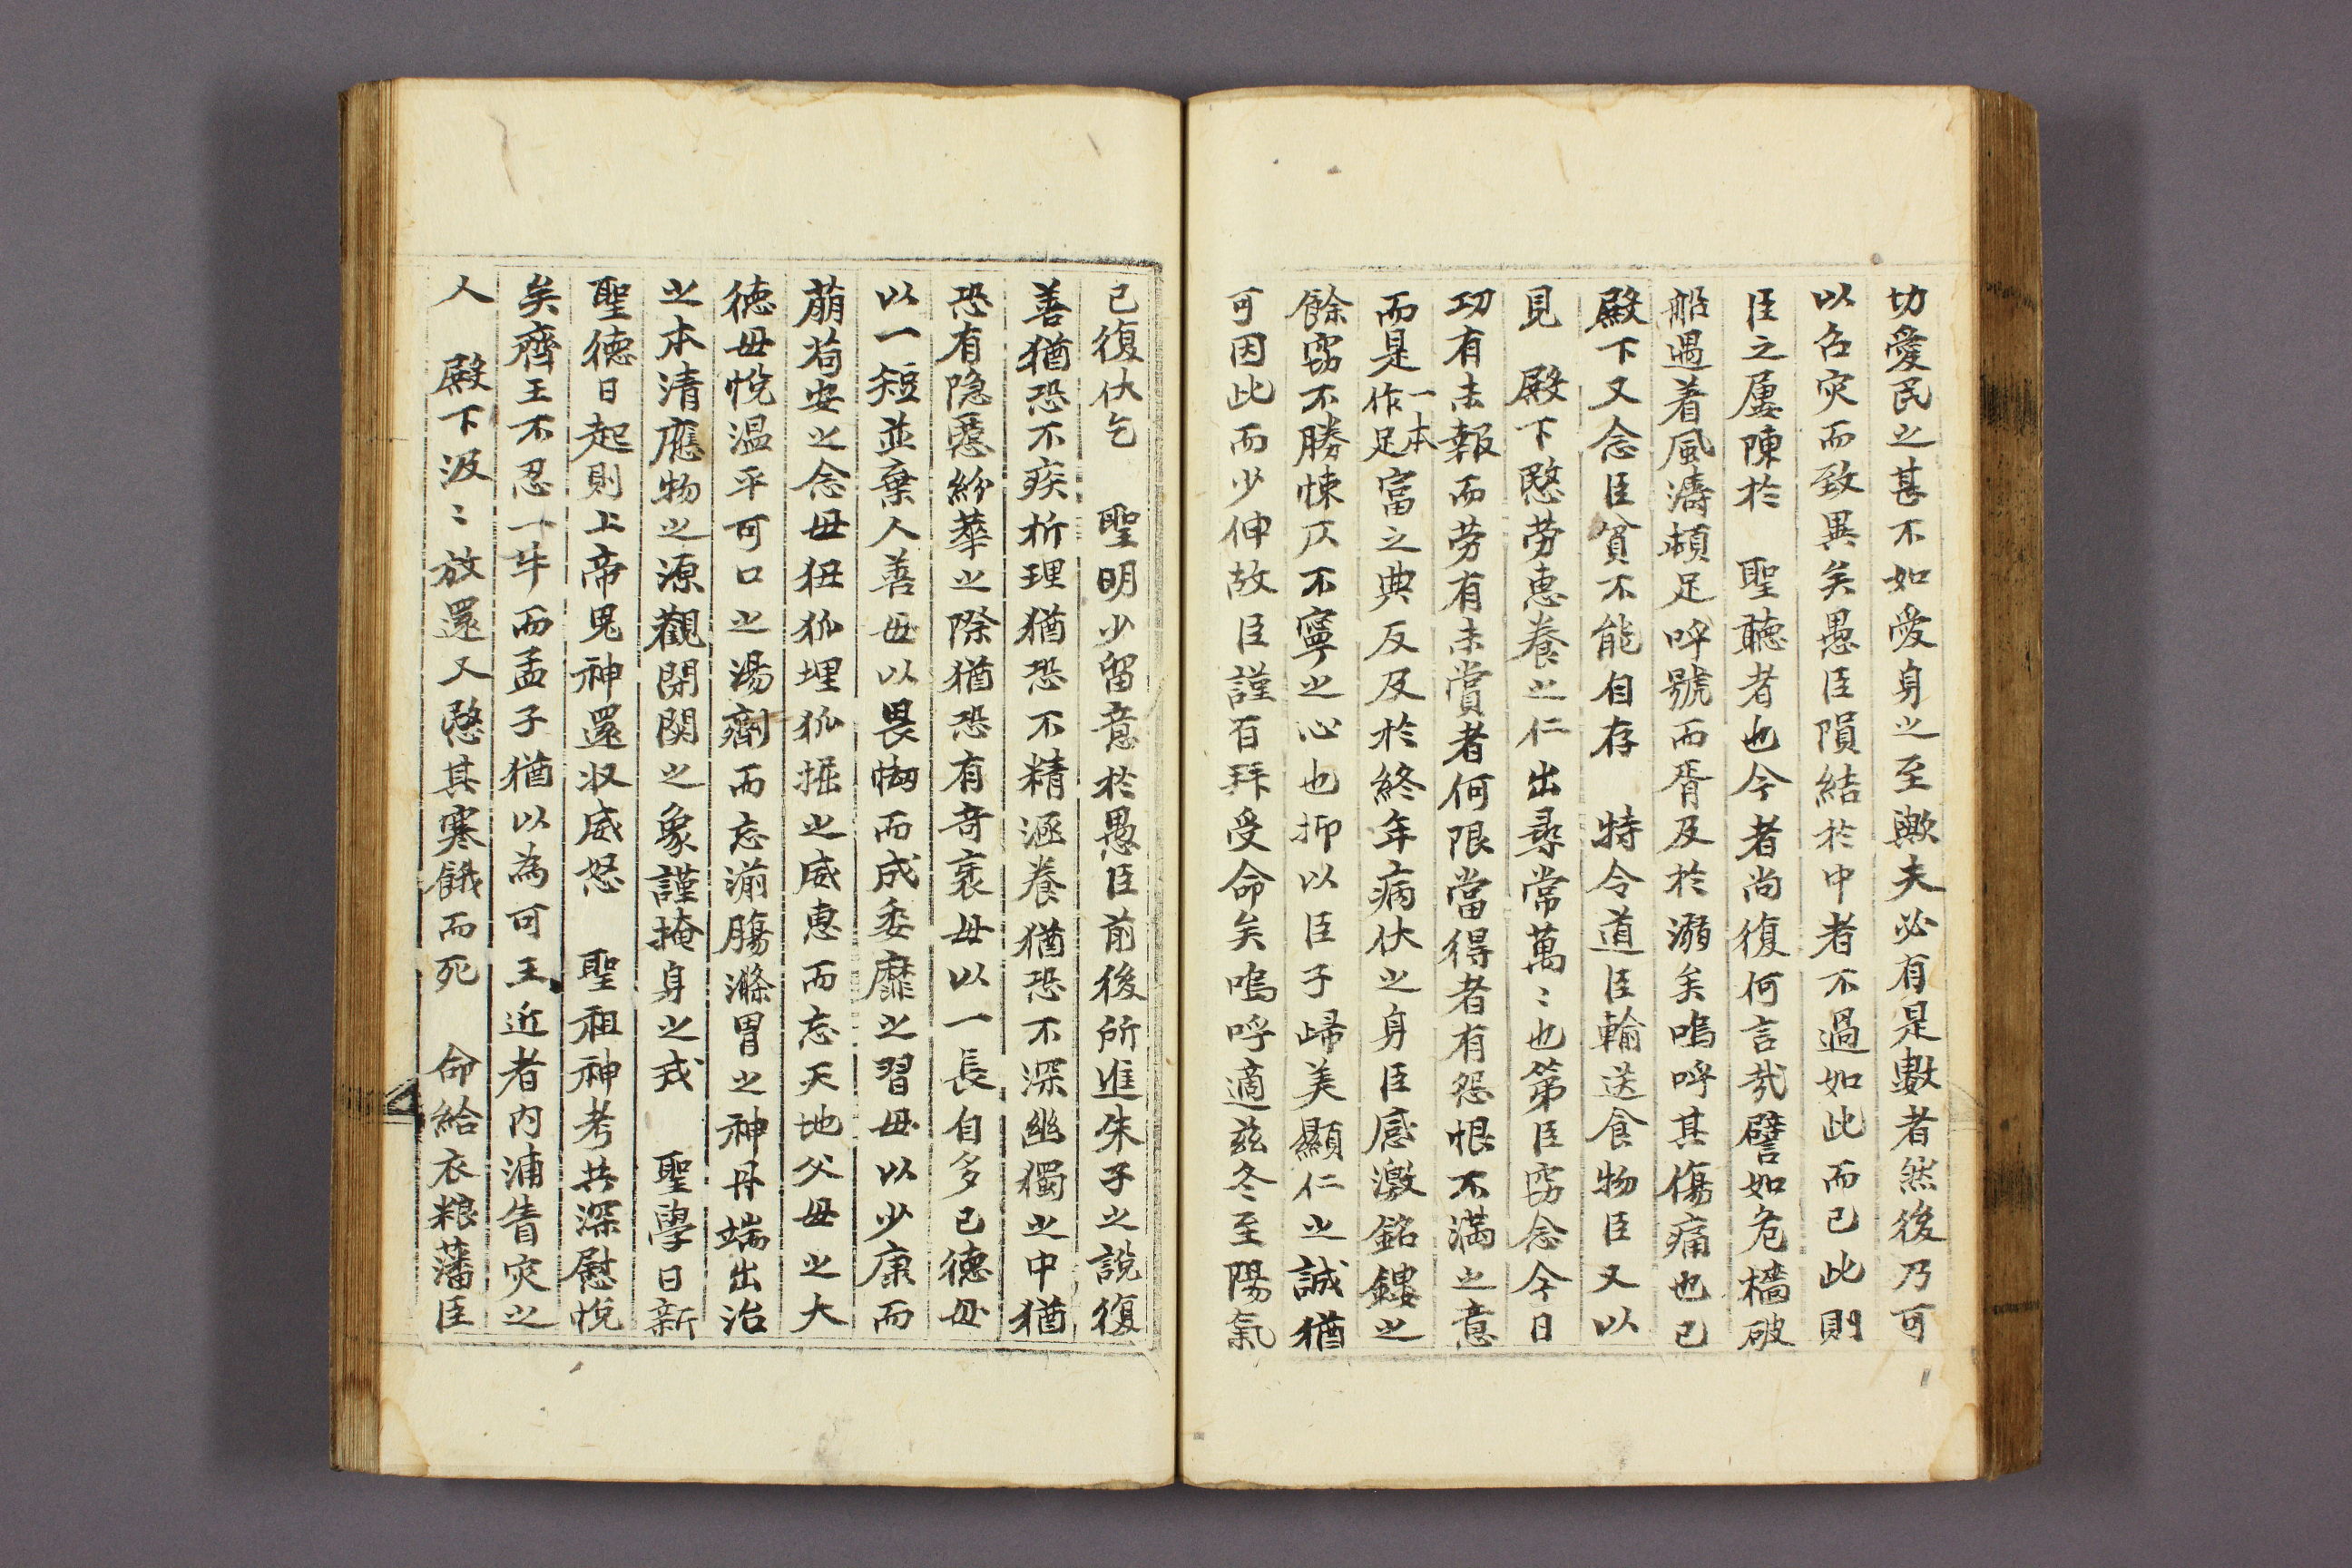 切愛民之甚不如愛身之至歟夫必有是數者然後乃可
以召灾而致異矣愚臣隕結於中者不過如此而已此則
臣之屢陳於　聖聽者也今者尚復何言哉譬如危檣破
船遇着風濤頓足呼號而胥及於溺矣嗚呼其傷痛也已
殿下又念臣貧不能自存　特令道臣輸送食物臣又以
見　殿下愍勞惠養之仁出尋常萬〻也第臣窃念今日
功有未報而劳有未賞者何限當得者有怨恨不滿之意
而是一本作足富之典反及於終年病伏之身臣感激銘鏤之
餘窃不勝悚仄不寧之心也抑以臣子歸美顯仁之誠猶
可因此而少伸故臣謹百拜受命矣嗚呼適茲冬至陽氣
已復伏乞　聖明少留意於愚臣前後所進朱子之說復
善猶恐不疾析理猶恐不精涵養猶恐不深幽獨之中猶
恐有隐慝紛華之際猶恐有奇袤毋以一長自多己德毋
以一短並棄人善毋以畏怮而成委靡之習毋以少康而
萠苟安之念毋狃狐埋狐掘之威惠而忘天地父母之大
德毋悅温平可口之湯劑而忘湔膓滌胃之神丹端出治
之本清應物之源觀閉関之象謹掩身之戎　聖學日新
聖德日起則上帝鬼神還収威怒　聖祖神考共深慰悅
矣齊王不忍一牛而孟子猶以為可王近者內浦眚灾之
人　殿下汲〻放還又愍其寒餓而死　命給衣粮藩臣